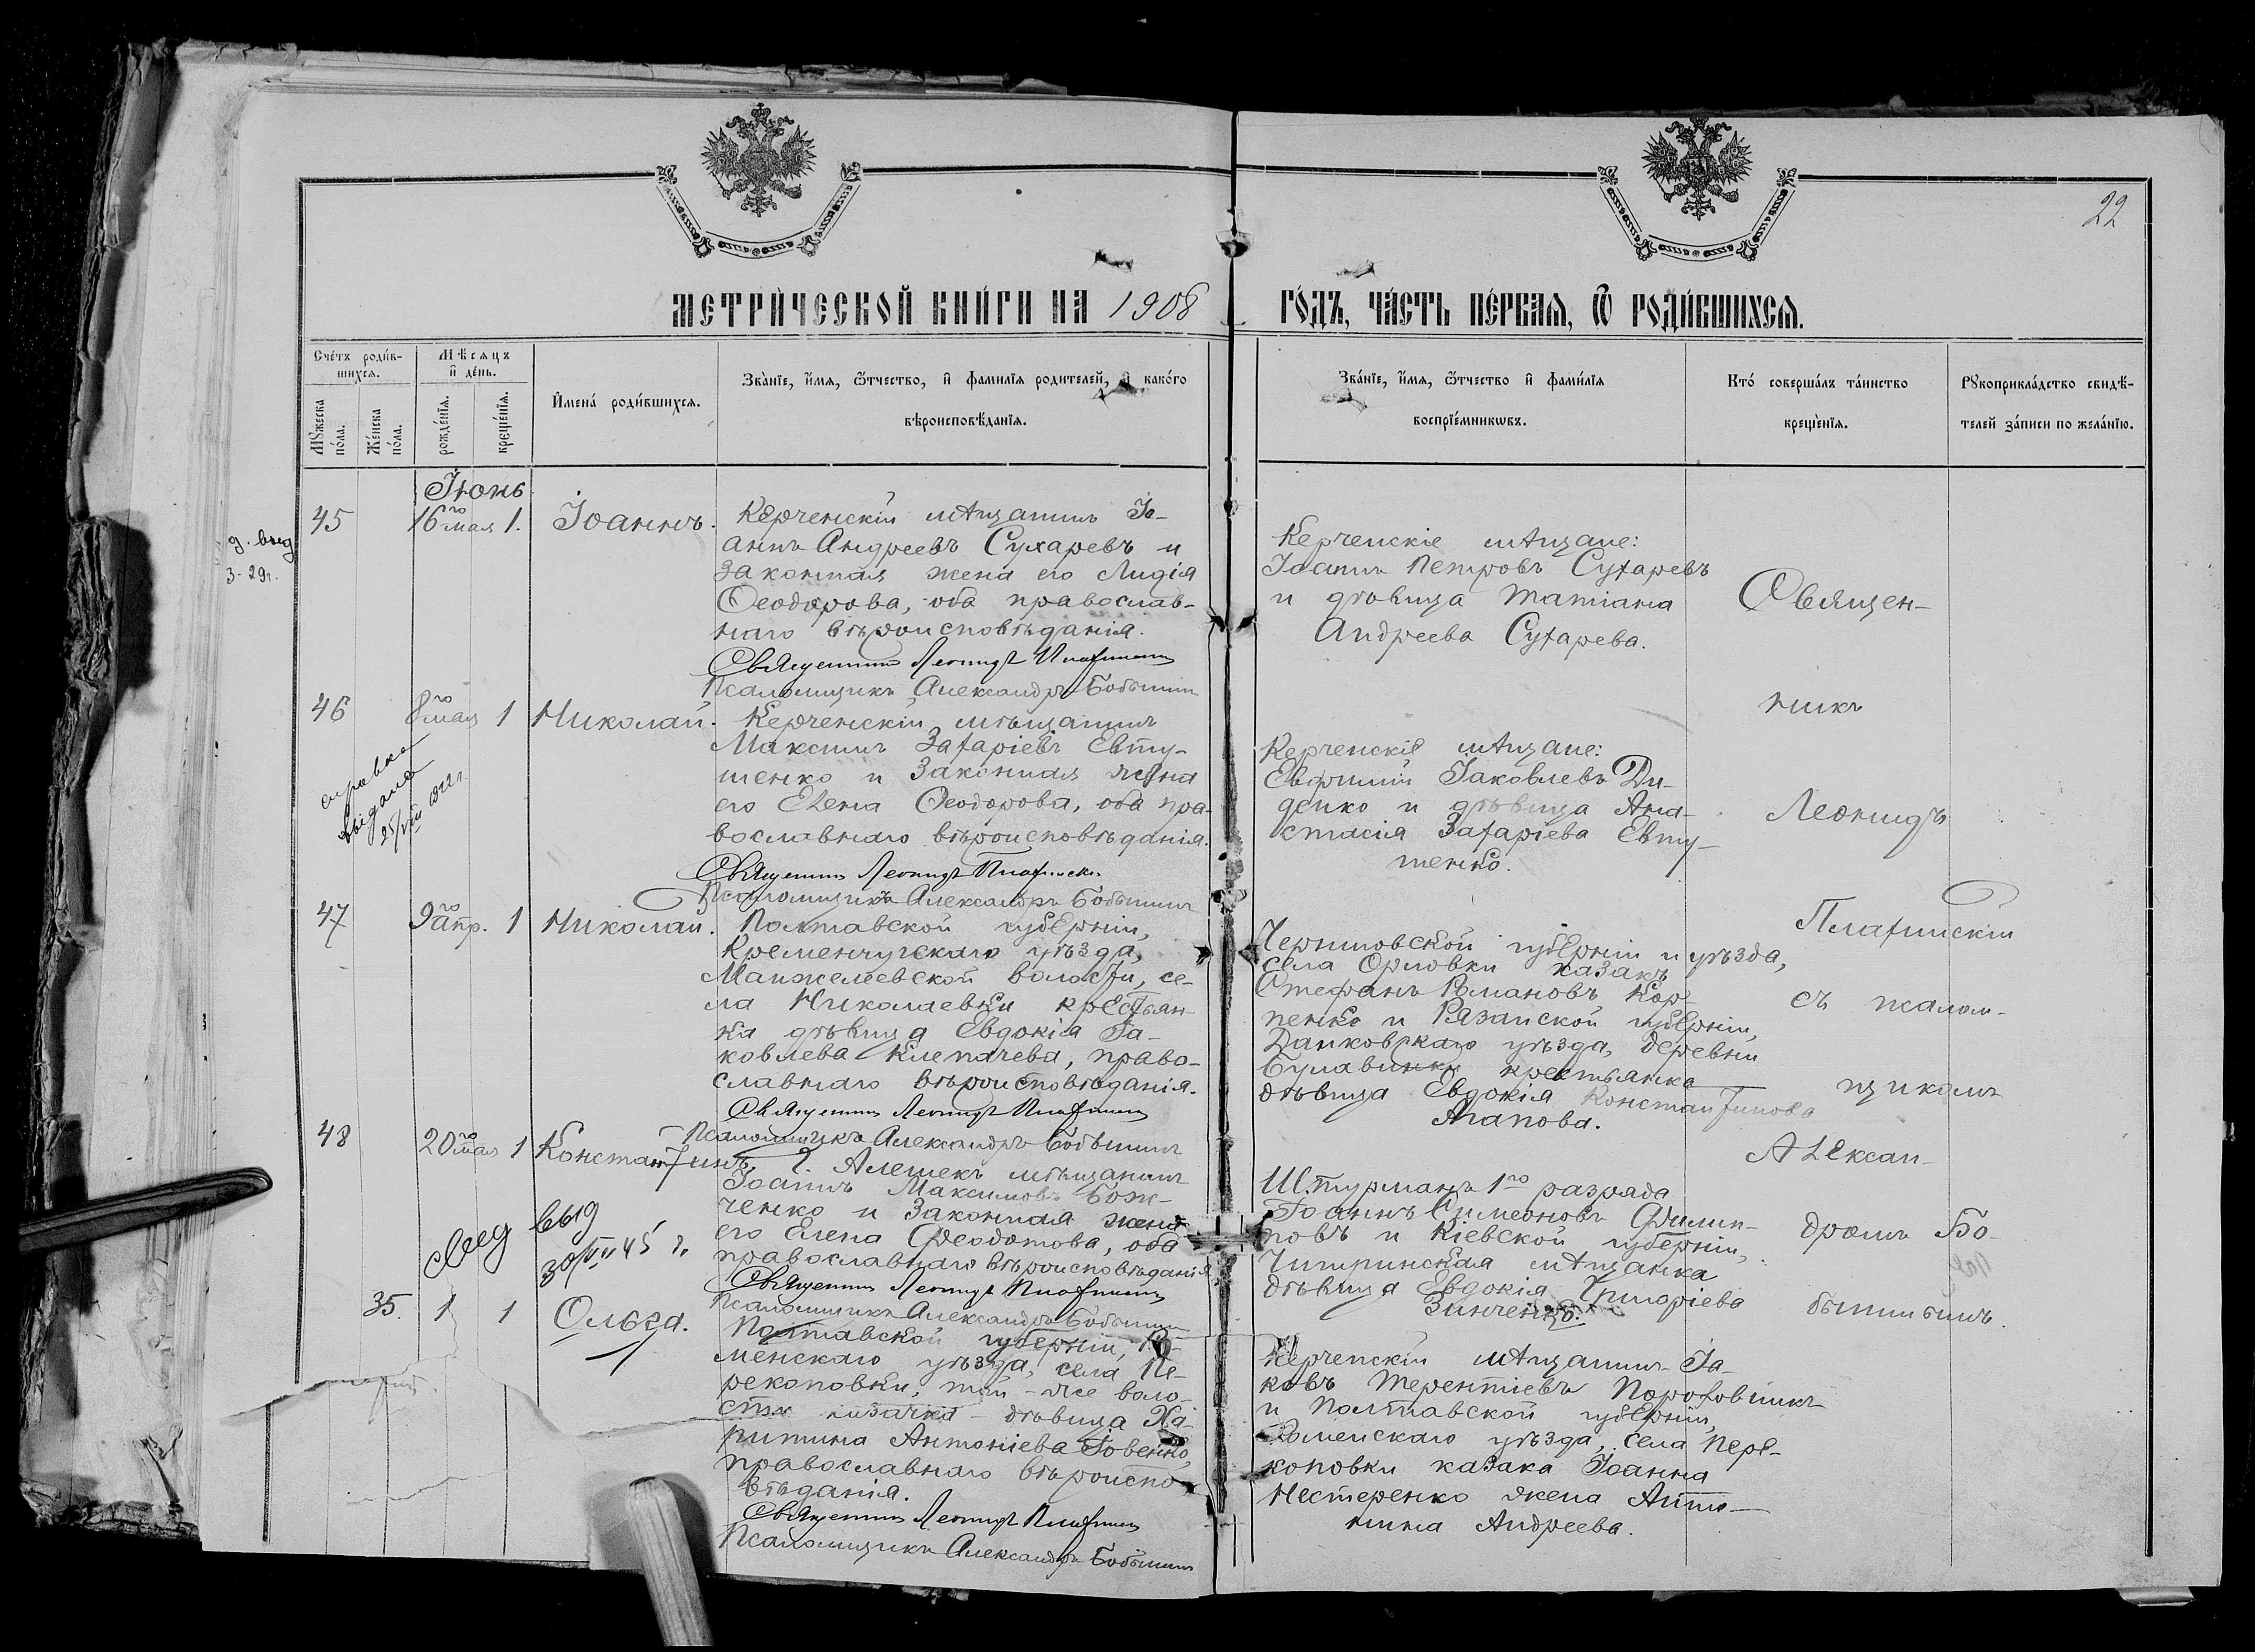 22
МЕТРИ́ЧЕСКОЙ КНИ́ГИ НА 1908 ГО́ДЪ, ЧА́СТЬ ПЕ́РВАЯ, Ѿ РОДИ́ВШИХСЯ.
Сче́тъ роди́в-
шихся.
Мѣ́сяцъ
и҆ де́нь.
Мꙋ́жеска
по́ла.
Же́нска
по́ла.
рожде́нїя.
креще́нїя.
И҆мена́ роди́вшихся.
Зва́нїе, и҆́мя, ѻ҆́тчество, и҆ фами́лїя роди́телей, и҆ како́го
вѣроисповѣ́данїя.
Зва́нїе, и҆́мя, ѻ҆́тчество и҆ фами́лїя
воспрїе́мникѡвъ.
Кто́ соверша́лъ та́инство
креще́нїя.
Рꙋкоприкла́дство свидѣ́-
телей за́писи по жела́нїю.
Іюнь
45
16го мая 1.
Іоаннъ.
Керченскій мѣщанинъ Іо-
аннъ Андреевъ Сухаревъ и
законная жена его Лидія
Ѳеодорова, оба православ-
наго вѣроисповѣданія.
Священникъ Леонидъ Платинскій
Псаломщикъ Александръ
Керченскіе мѣщане:
Іоаннъ Петровъ Сухаревъ
и дѣвица Татіана
Андреева Сухарева.
3-29г.
46
8го мая 1
Николай.
Керченскій мѣщанинъ
Максимъ Захаріевъ Евту-
шенко и законная жена
его Елена Ѳеодорова, оба пра-
вославнаго вѣроисповѣданія.
Священникъ Леонидъ
Псаломщикъ Александръ
Керченскіе мѣщане:
Евфимій Іаковлевъ Ди-
денко и дѣвица Ана-
стасія Захаріева Евту-
шенко.
справка
выдана
47
9го апр. 1
Николай.
Полтавской губерніи,
Кременчугскаго уѣзда,
Манжелеевской волости, се-
ла Николаевки крестьян-
ка дѣвица Евдокія Іа-
ковлева Клепачева, право-
славнаго вѣроисповѣданія.
Священникъ Леонидъ
Псаломщикъ Александръ
Черниговской губерніи и уѣзда,
села Орловки казакъ
Стефанъ Романовъ Кор-
пенко и Рязанской губерніи,
Данковскаго уѣзда, деревни
крестьянка
дѣвица Евдокія Константинова
Агапова.
48
20го мая 1
Константинъ
г. Алешекъ мѣщанинъ
Іоаннъ Максимовъ Бож-
ченко и законная жена
его Елена Ѳеодотова, оба
православнаго вѣроисповѣданія
Священникъ Леонидъ
Псаломщикъ Александръ
Штурманъ 1го разряда
Іоаннъ Симеоновъ Филип-
повъ и Кіевской губерніи,
Чигиринская мѣщанка
дѣвица Евдокія Григоріева
Зинченко.
выд
35. 1 1
Ольга.
Полтавской губерніи, Ро-
менскаго уѣзда, села Пе-
рекоповки, той-же воло-
сти казачка-дѣвица Ха-
ритина Антоніева Іовенко,
православнаго вѣроиспо-
вѣданія.
Священникъ Леонидъ
Псаломщикъ Александръ
Керченскій мѣщанинъ Іа-
ковъ Терентіевъ Пороховникъ
и Полтавской губерніи,
Роменскаго уѣзда, села Пере-
коповки казака Іоанна
Нестеренко жена Анто-
нина Андреева.
Священ-
никъ
Леонидъ
Платинскій
съ псалом-
щикомъ
Алексан-
дромъ Бо-